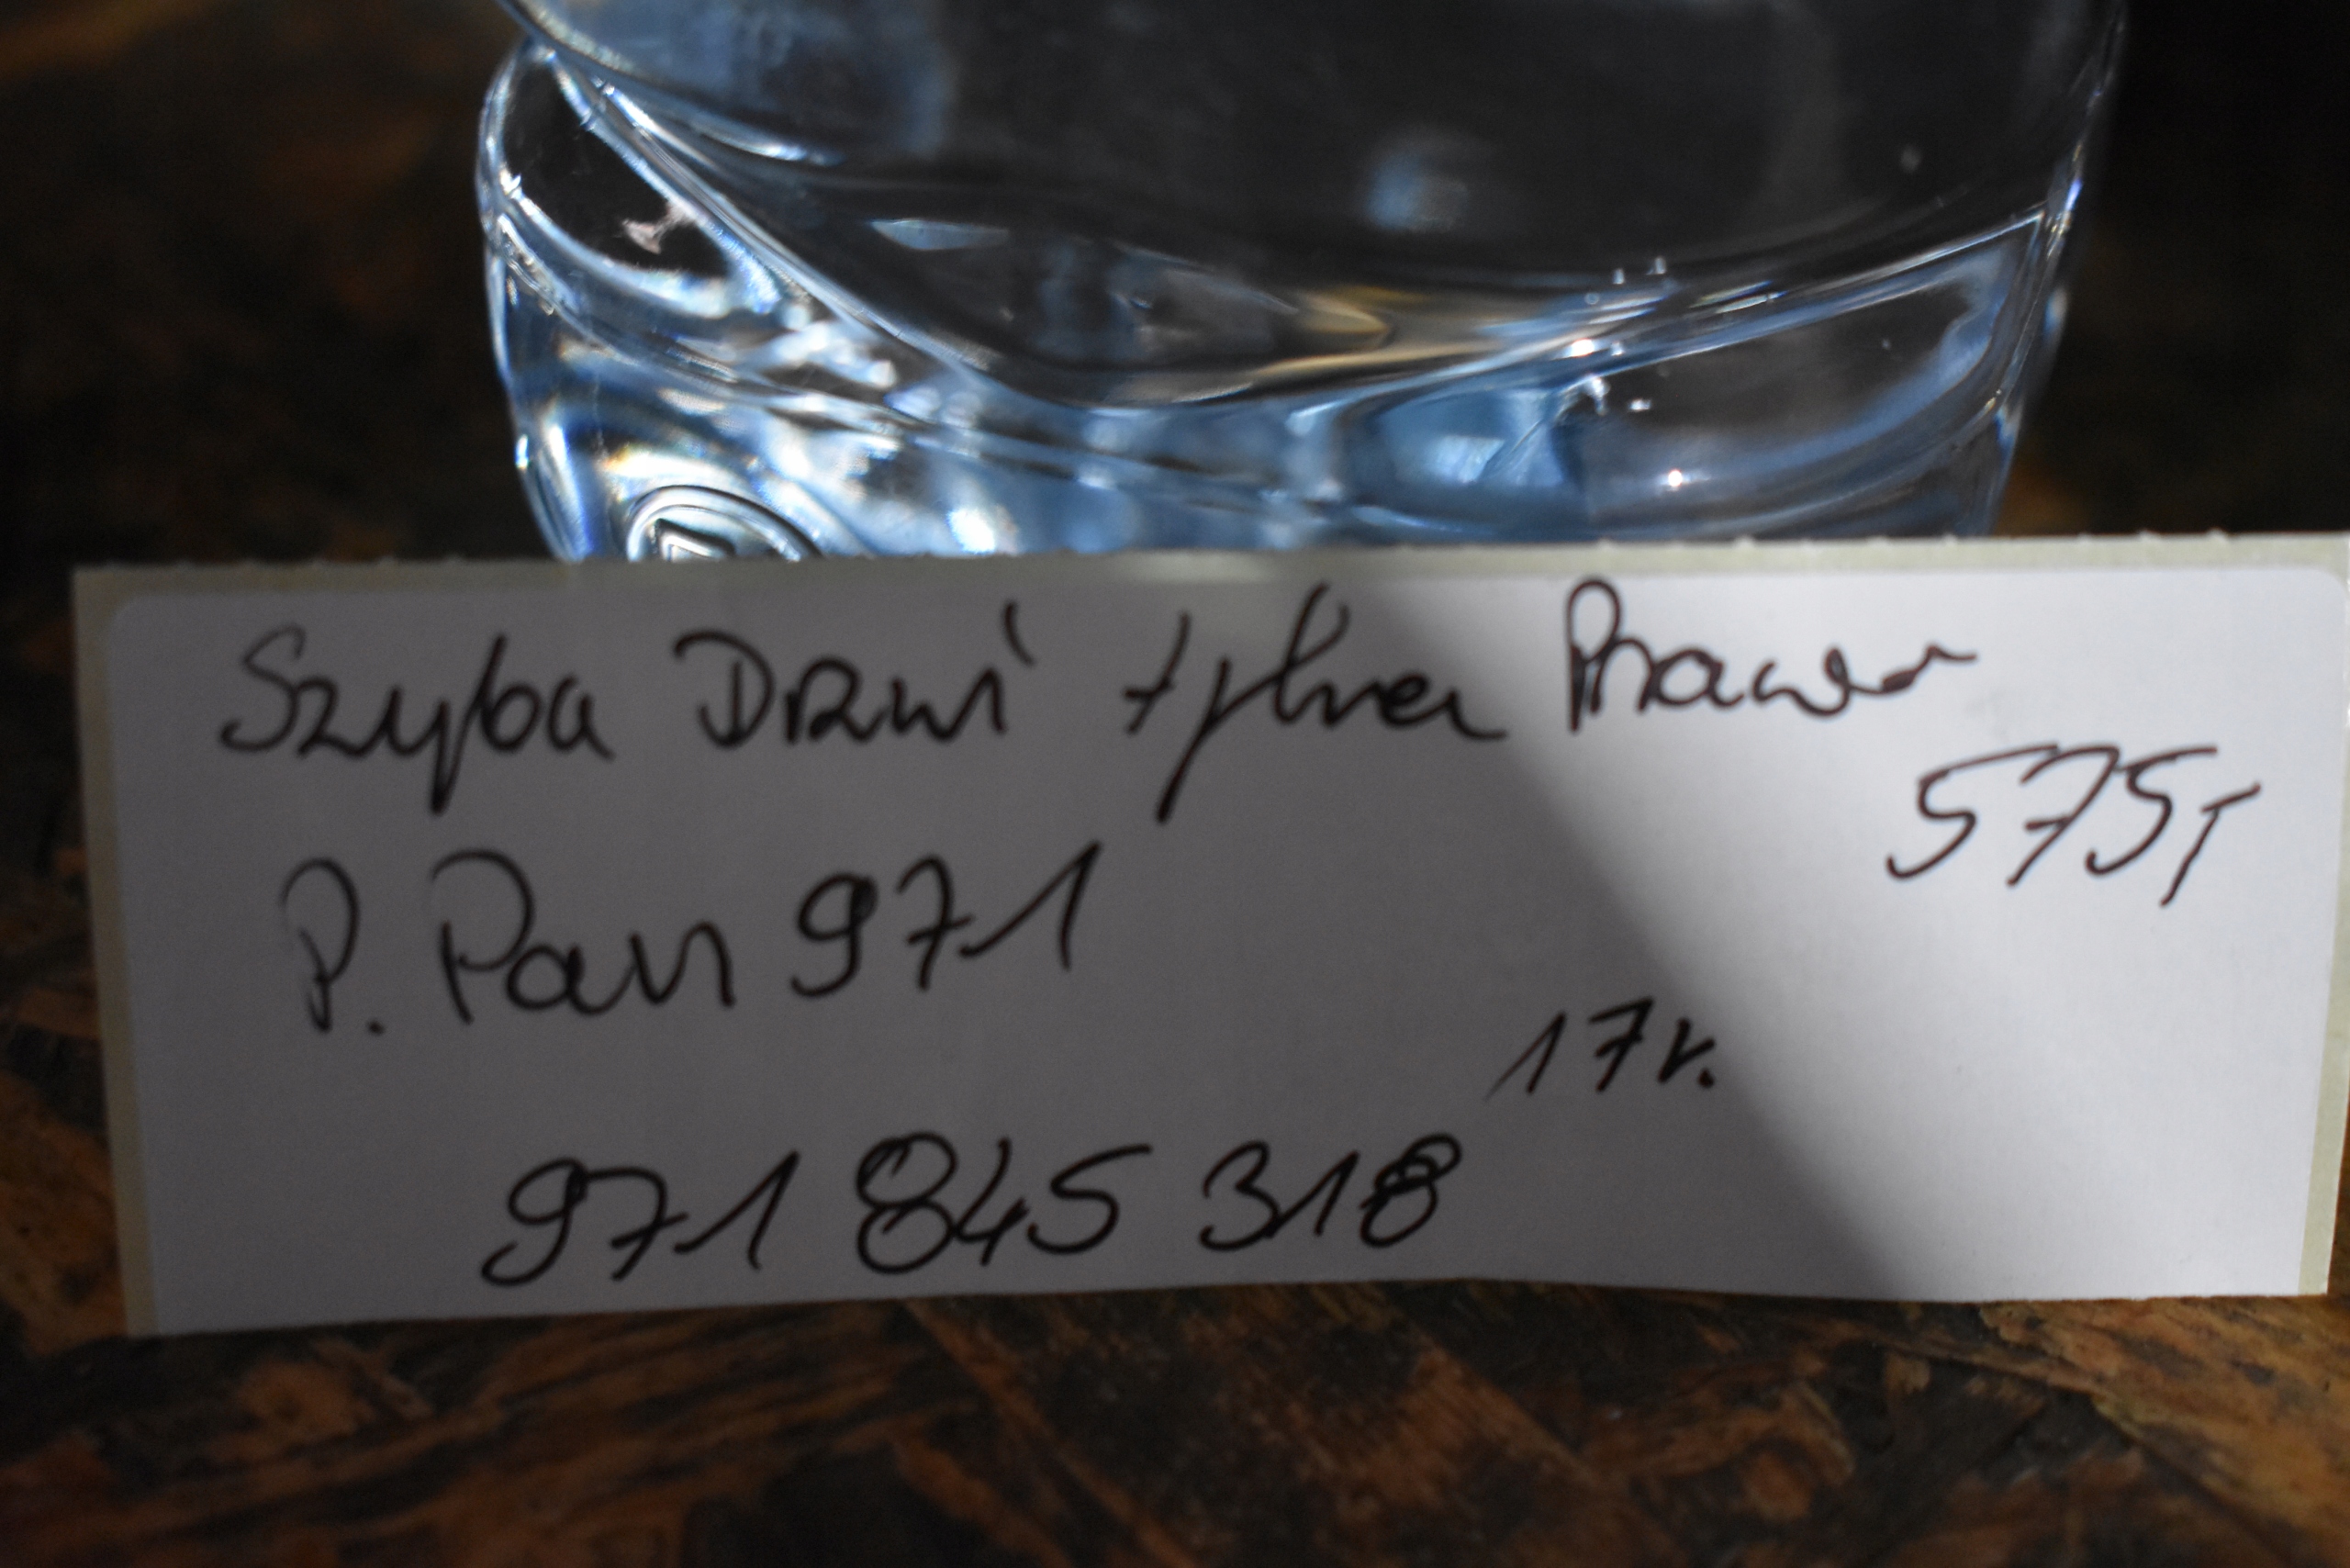 Szyba Drzwi tylna Prawa
575,-
P. Pan 971
17r.
971 845 318